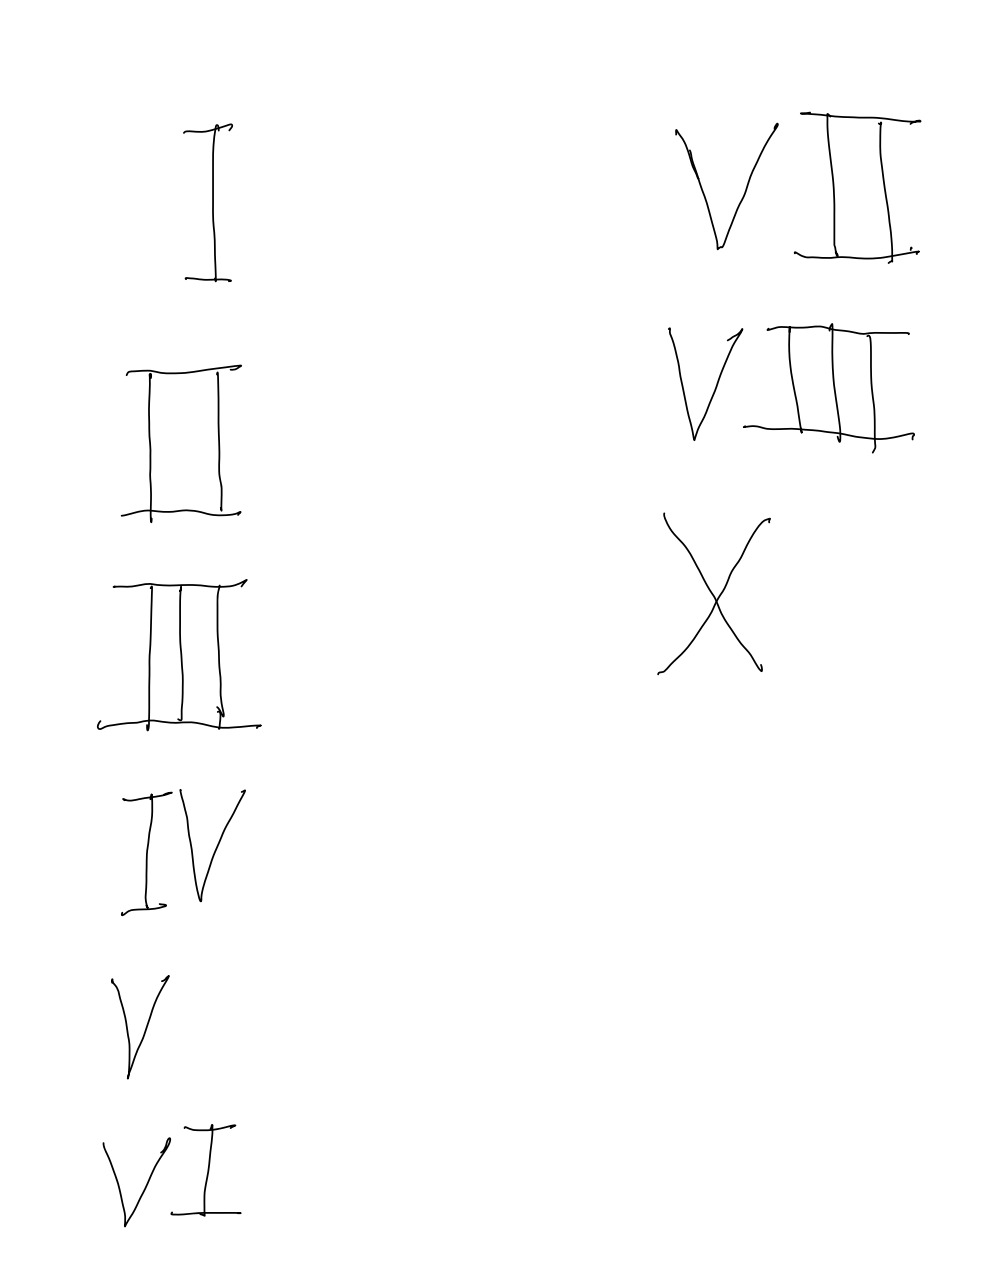 I
II
III
IV
V
VI
VII
VIII
X